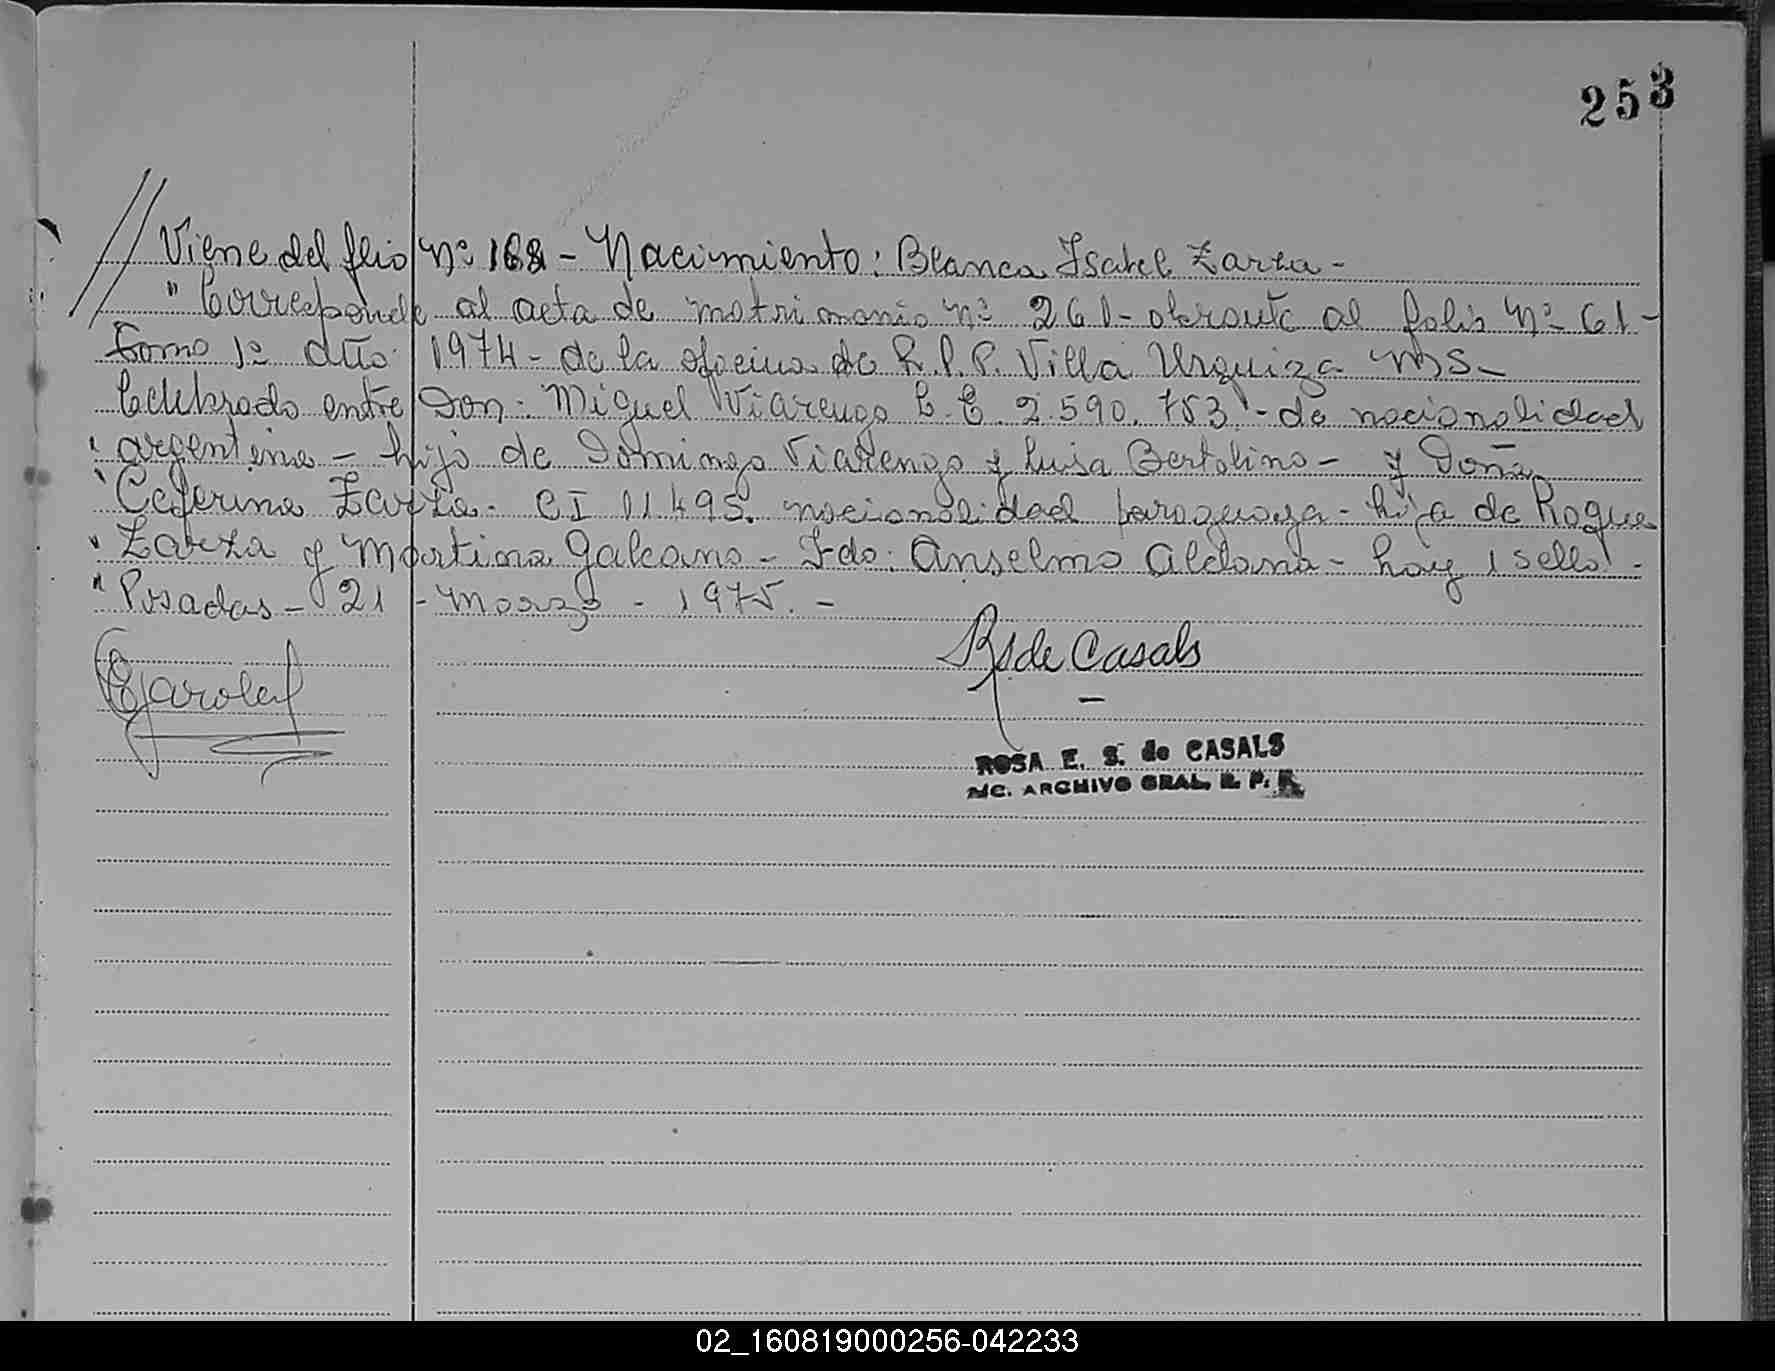 253
// Viene del flio Nº 168 - Nacimiento: Blanca Isabel Zarza -
" Corresponde al acta de matrimonio Nº 261 - obrante al folio Nº 61 -
Tomo 1º año 1974 - de la oficina de R.P.P. Villa Urquiza Ms -
Celebrado entre Don: Miguel Viarengo 2.590.753 - de nacionalidad
" argentina - hijo de Domingo Viarengo y Luisa Bertolino - y Doña
" Ceferina Zarza - CI 11495. nacionalidad paraguaya - hija de Roque
" Zarza y Martina Galeano - Fdo: Anselmo Aldana - hay 1 sello -
" Posadas - 21 - Marzo - 1975. -
RS de Casals
ROSA E. S. de CASALS
ARCHIVO GRAL. R. P. P.
02_160819000256-042233